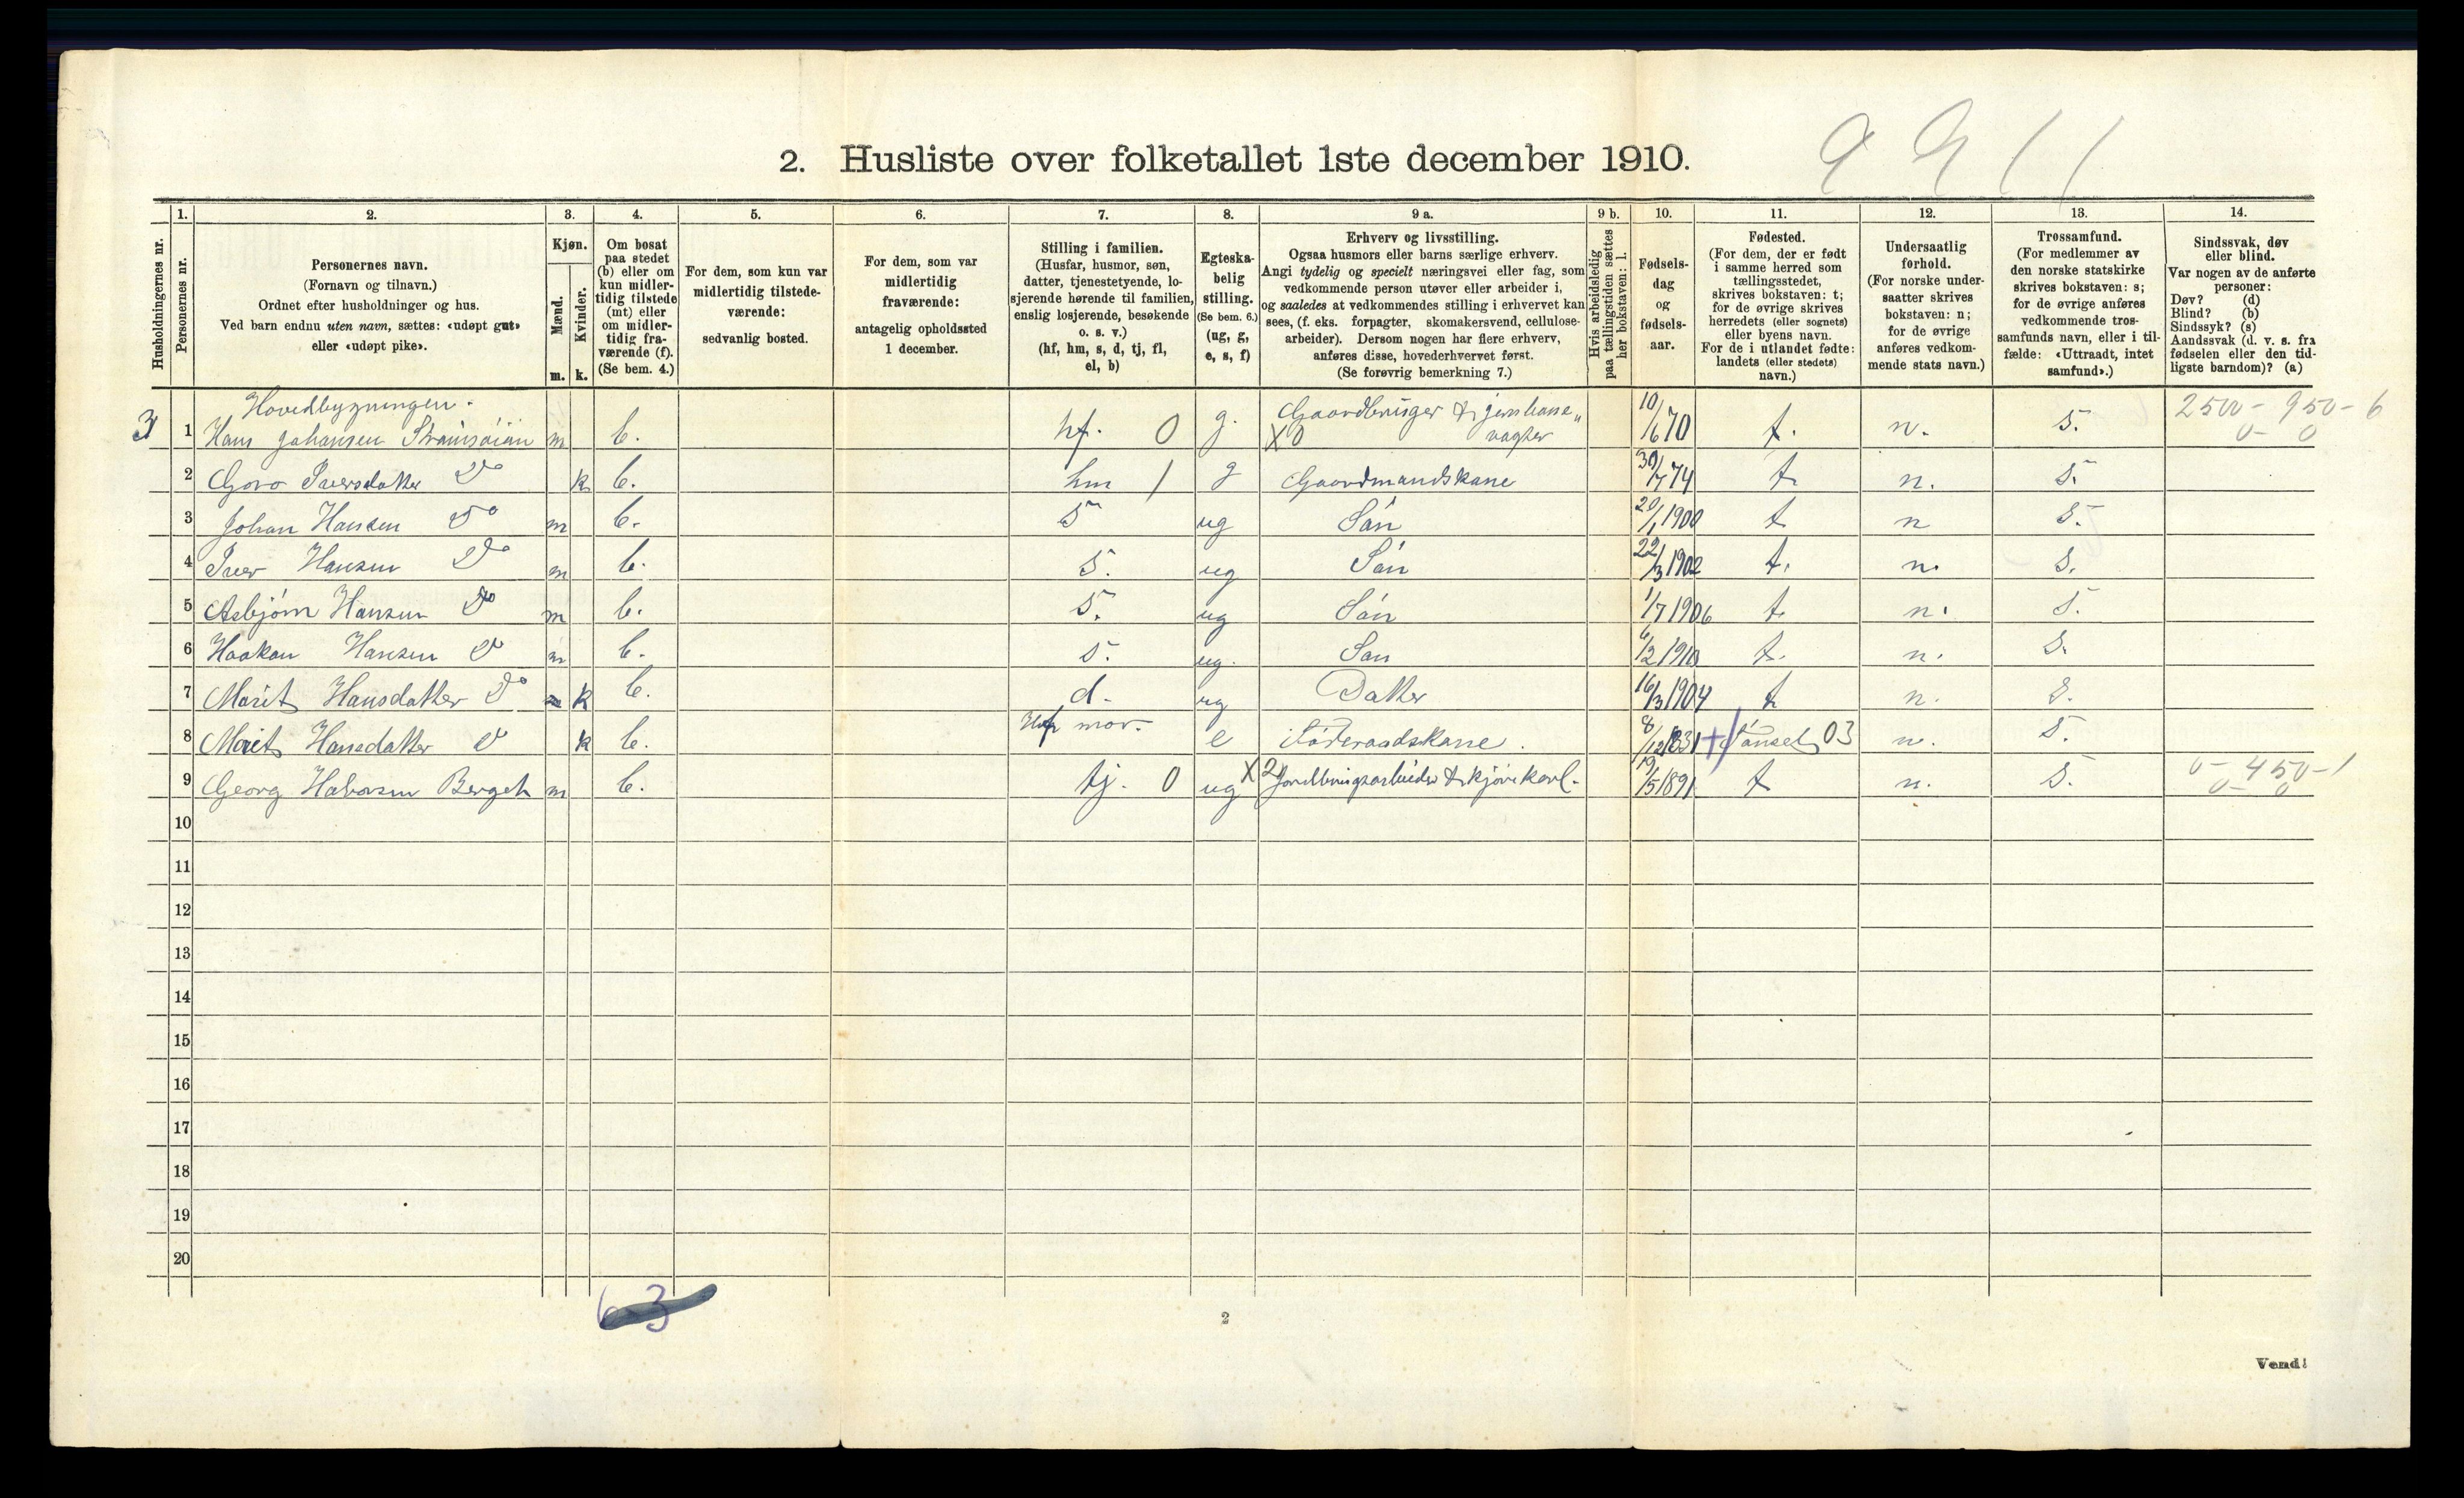 2. Husliste over folketallet 1ste december 1910.
9 9 1 1
1. 2. 3. 4. 5. 6. 7. 8. 9 a. 9 b. 10. 11. 12. 13. 14.
Husholdningernes nr.
Personernes nr.
Personernes navn.
(Fornavn og tilnavn.)
Ordnet efter husholdninger og hus.
Ved barn endnu uten navn, sættes: «udøpt gut»
eller «udøpt pike».
Kjøn.
Mænd.
Kvinder.
m. k.
Om bosat
paa stedet
(b) eller om
kun midler-
tidig tilstede
(mt) eller
om midler-
tidig fra-
værende (f).
(Se bem. 4.)
For dem, som kun var
midlertidig tilstede-
værende:
sedvanlig bosted.
For dem, som var
midlertidig
fraværende:
antagelig opholdssted
1 december.
Stilling i familien.
(Husfar, husmor, søn,
datter, tjenestetyende, lo-
sjerende hørende til familien,
enslig losjerende, besøkende
o. s. v.)
(hf, hm, s, d, tj, fl,
el, b)
Egteska-
belig
stilling.
(Se bem. 6.)
(ug, g,
e, s, f)
Erhverv og livsstilling.
Ogsaa husmors eller barns særlige erhverv.
Angi tydelig og specielt næringsvei eller fag, som
vedkommende person utøver eller arbeider i,
og saaledes at vedkommendes stilling i erhvervet kan
sees, (f. eks. forpagter, skomakersvend, cellulose-
arbeider). Dersom nogen har flere erhverv,
anføres disse, hovederhvervet først.
(Se forøvrig bemerkning 7.)
Hvis arbeidsledig
paa tællingstiden sættes
her bokstaven: l.
Fødsels-
dag
og
fødsels-
aar.
Fødested.
(For dem, der er født
i samme herred som
tællingsstedet,
skrives bokstaven: t;
for de øvrige skrives
herredets (eller sognets)
eller byens navn.
For de i utlandet fødte:
landets (eller stedets)
navn.)
Undersaatlig
forhold.
(For norske under-
saatter skrives
bokstaven: n;
for de øvrige
anføres vedkom-
mende stats navn.)
Trossamfund.
(For medlemmer av
den norske statskirke
skrives bokstaven: s;
for de øvrige anføres
vedkommende tros-
samfunds navn, eller i til-
fælde: «Uttraadt, intet
samfund».)
Sindssvak, døv
eller blind.
Var nogen av de anførte
personer:
Døv? (d)
Blind? (b)
Sindssyk? (s)
Aandssvak (d. v. s. fra
fødselen eller den tid-
ligste barndom)? (a)
Hovedbygningen.
1 Hans Johansen m b. hf. 0 g. Gaardbruger & jernbane„ vagter X0 10/6 70 t. n. s. 2500- 950- 6
0- 0
2 Goro Iversdatter Do k b. hm / g Gaardmandskone 30/7 74 t n. s.
3 Johan Hansen Do m b. s ug Sön 20/1 1900 t n s.
4 Iver Hansen Do m b. s. ug Sön 22/3 1902 t. n. s.
5 Asbjörn Hansen Do m b. s. ug Sön 1/7 1906 t n. s.
6 Haakon Hansen Do m b. s. ug. Sön 6/2 1910 t. n. s.
7 Marit Hansdatter Do k b. d. ug Datter 16/3 1904 t n. s.
8 Marit Hansdatter Do k b. mor. e Föderaadskone. 8/12 1831 Tönset 03 n. s.
9 Georg Halvorsen Berget m b. tj. 0 ug X2 Jordbrugsarbeider & kjörekarl. 19/5 1891 t n. s. 0- 450-1
0- 0
10
11
12
13
14
15
16
17
18
19
20
6 3
2
Vend!